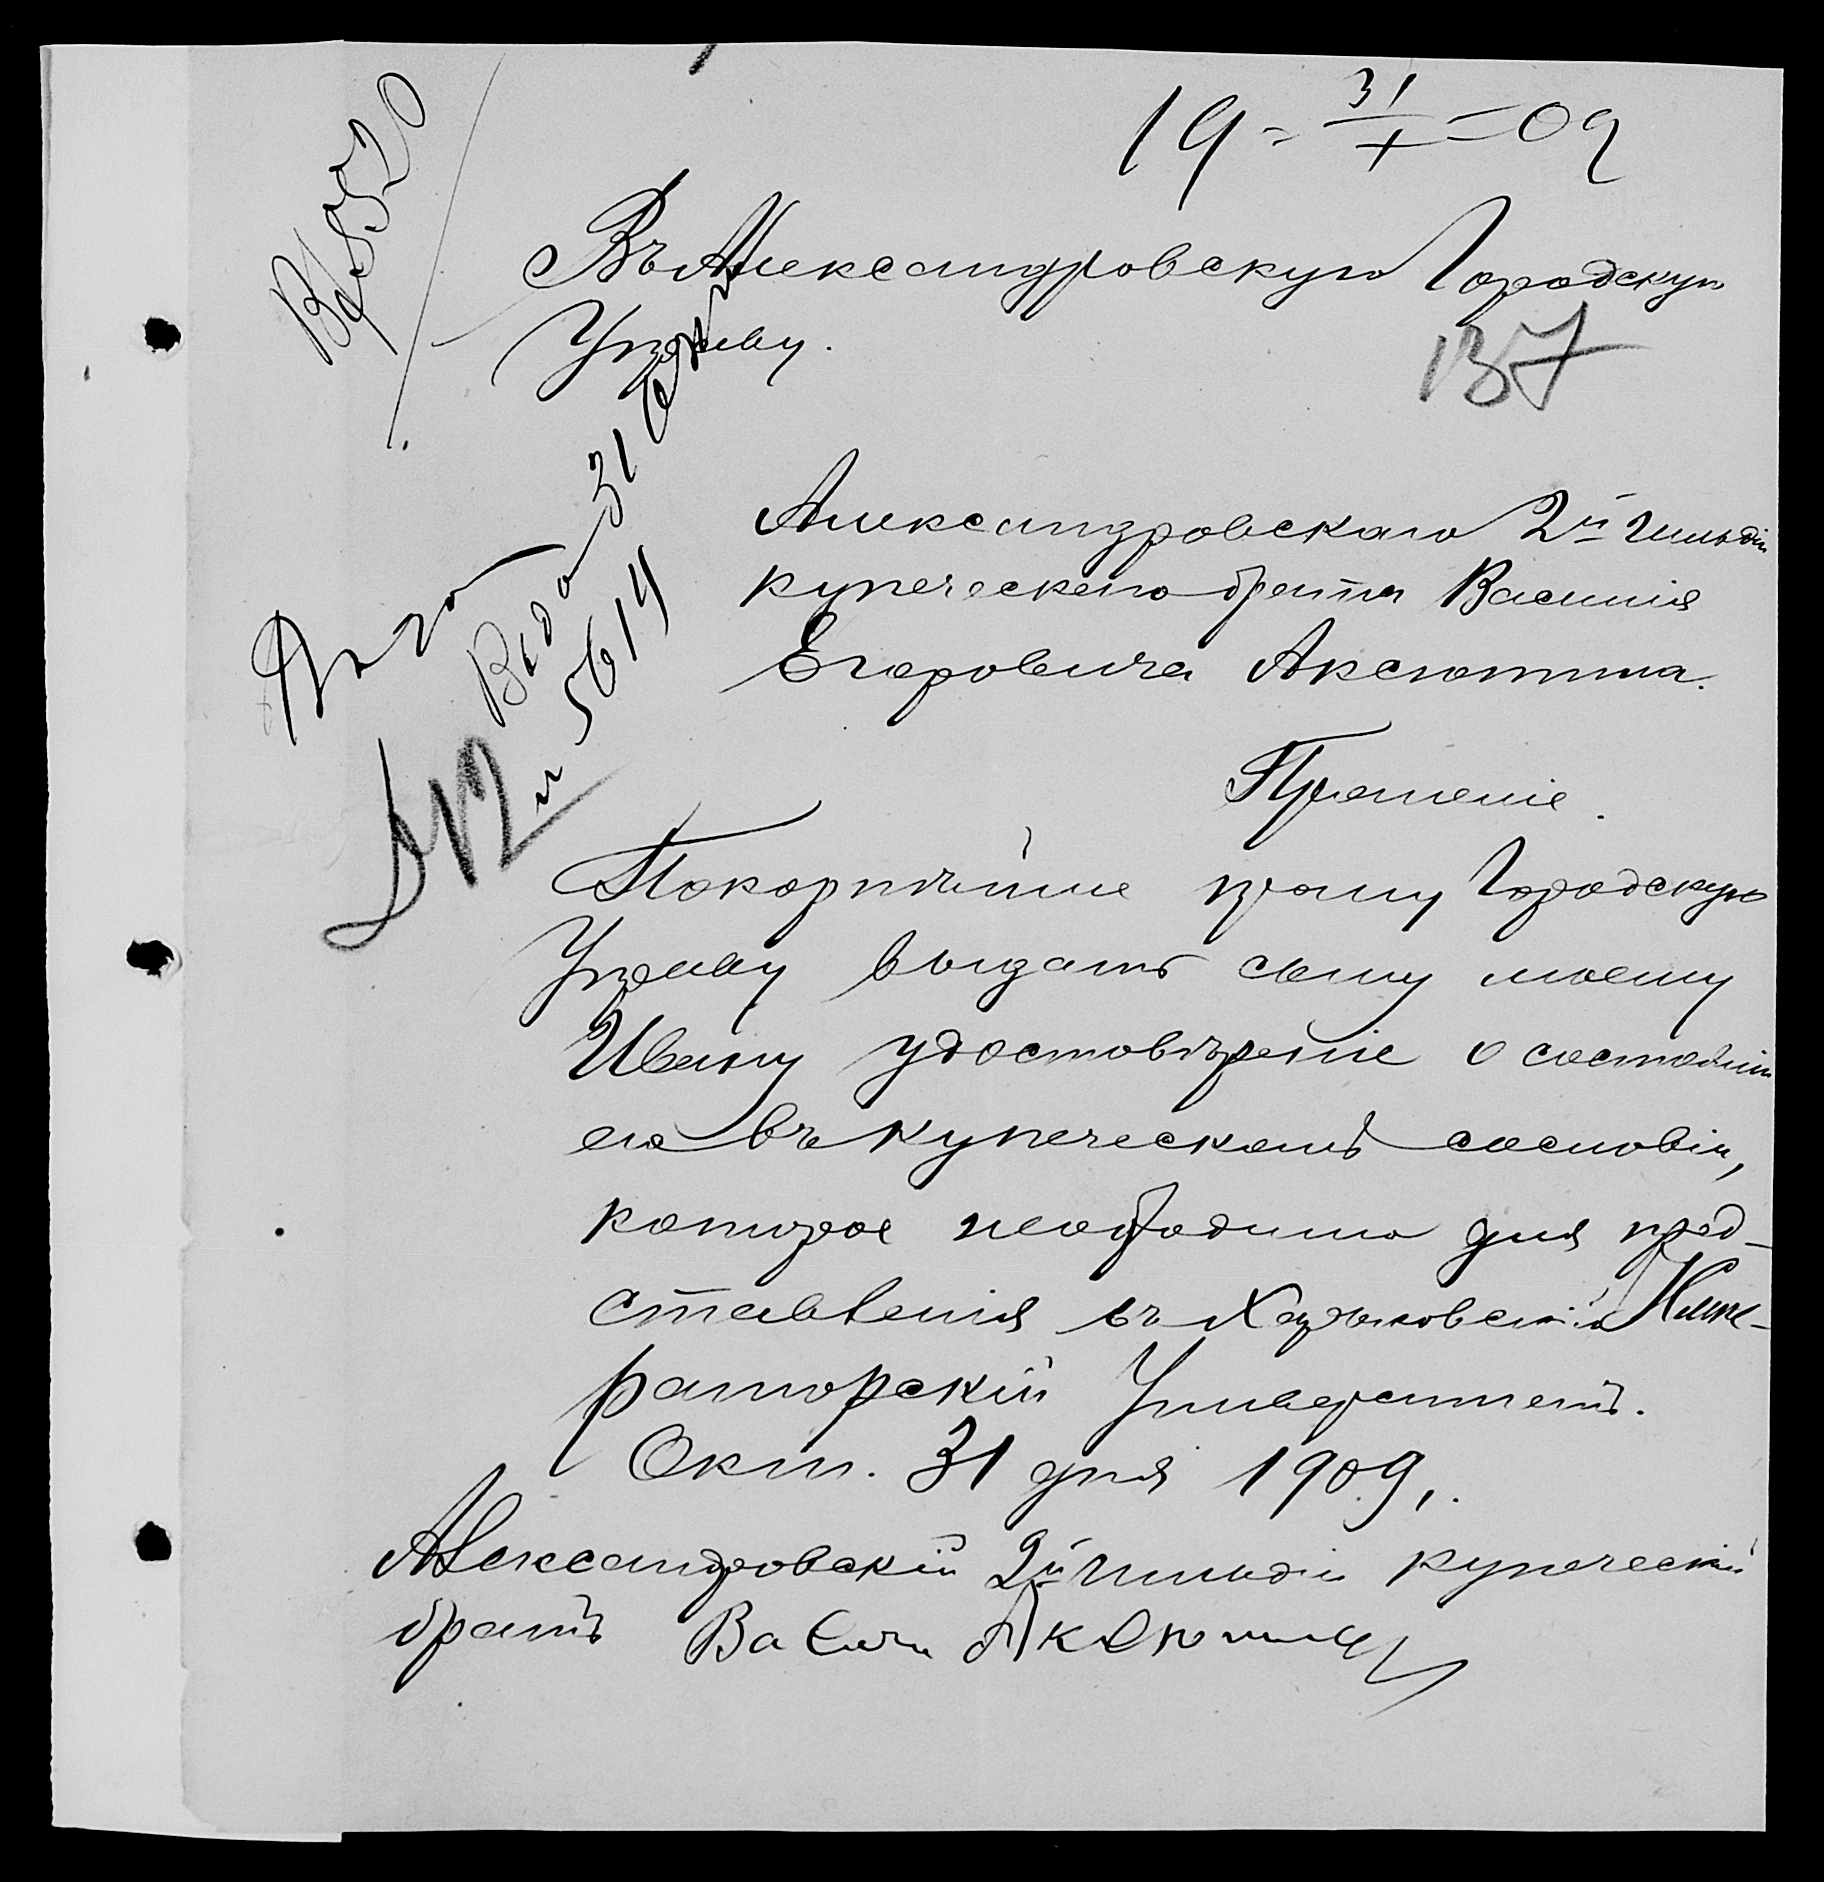 19 - 31/X - 09
Вх 8520
Въ Александровскую Городскую
Управу.
137
Александровскаго 2й гильдіи
купеческаго брата Василія
Егоровича Аксютина.
Выд 31 Окт
№ 5614
Прошеніе.
Покорнѣйше прошу Городскую
Управу выдать сыну моему
Ивану удостовѣреніе о состояніи
его въ купеческомъ сословіи,
которое необходимо для пред-
ставленія въ Харьковскій Импе-
раторскій Университетъ.
Окт. 31 дня 1909,.
Александровскій 2й гильдіи купеческій
братъ Васили Аксютинъ